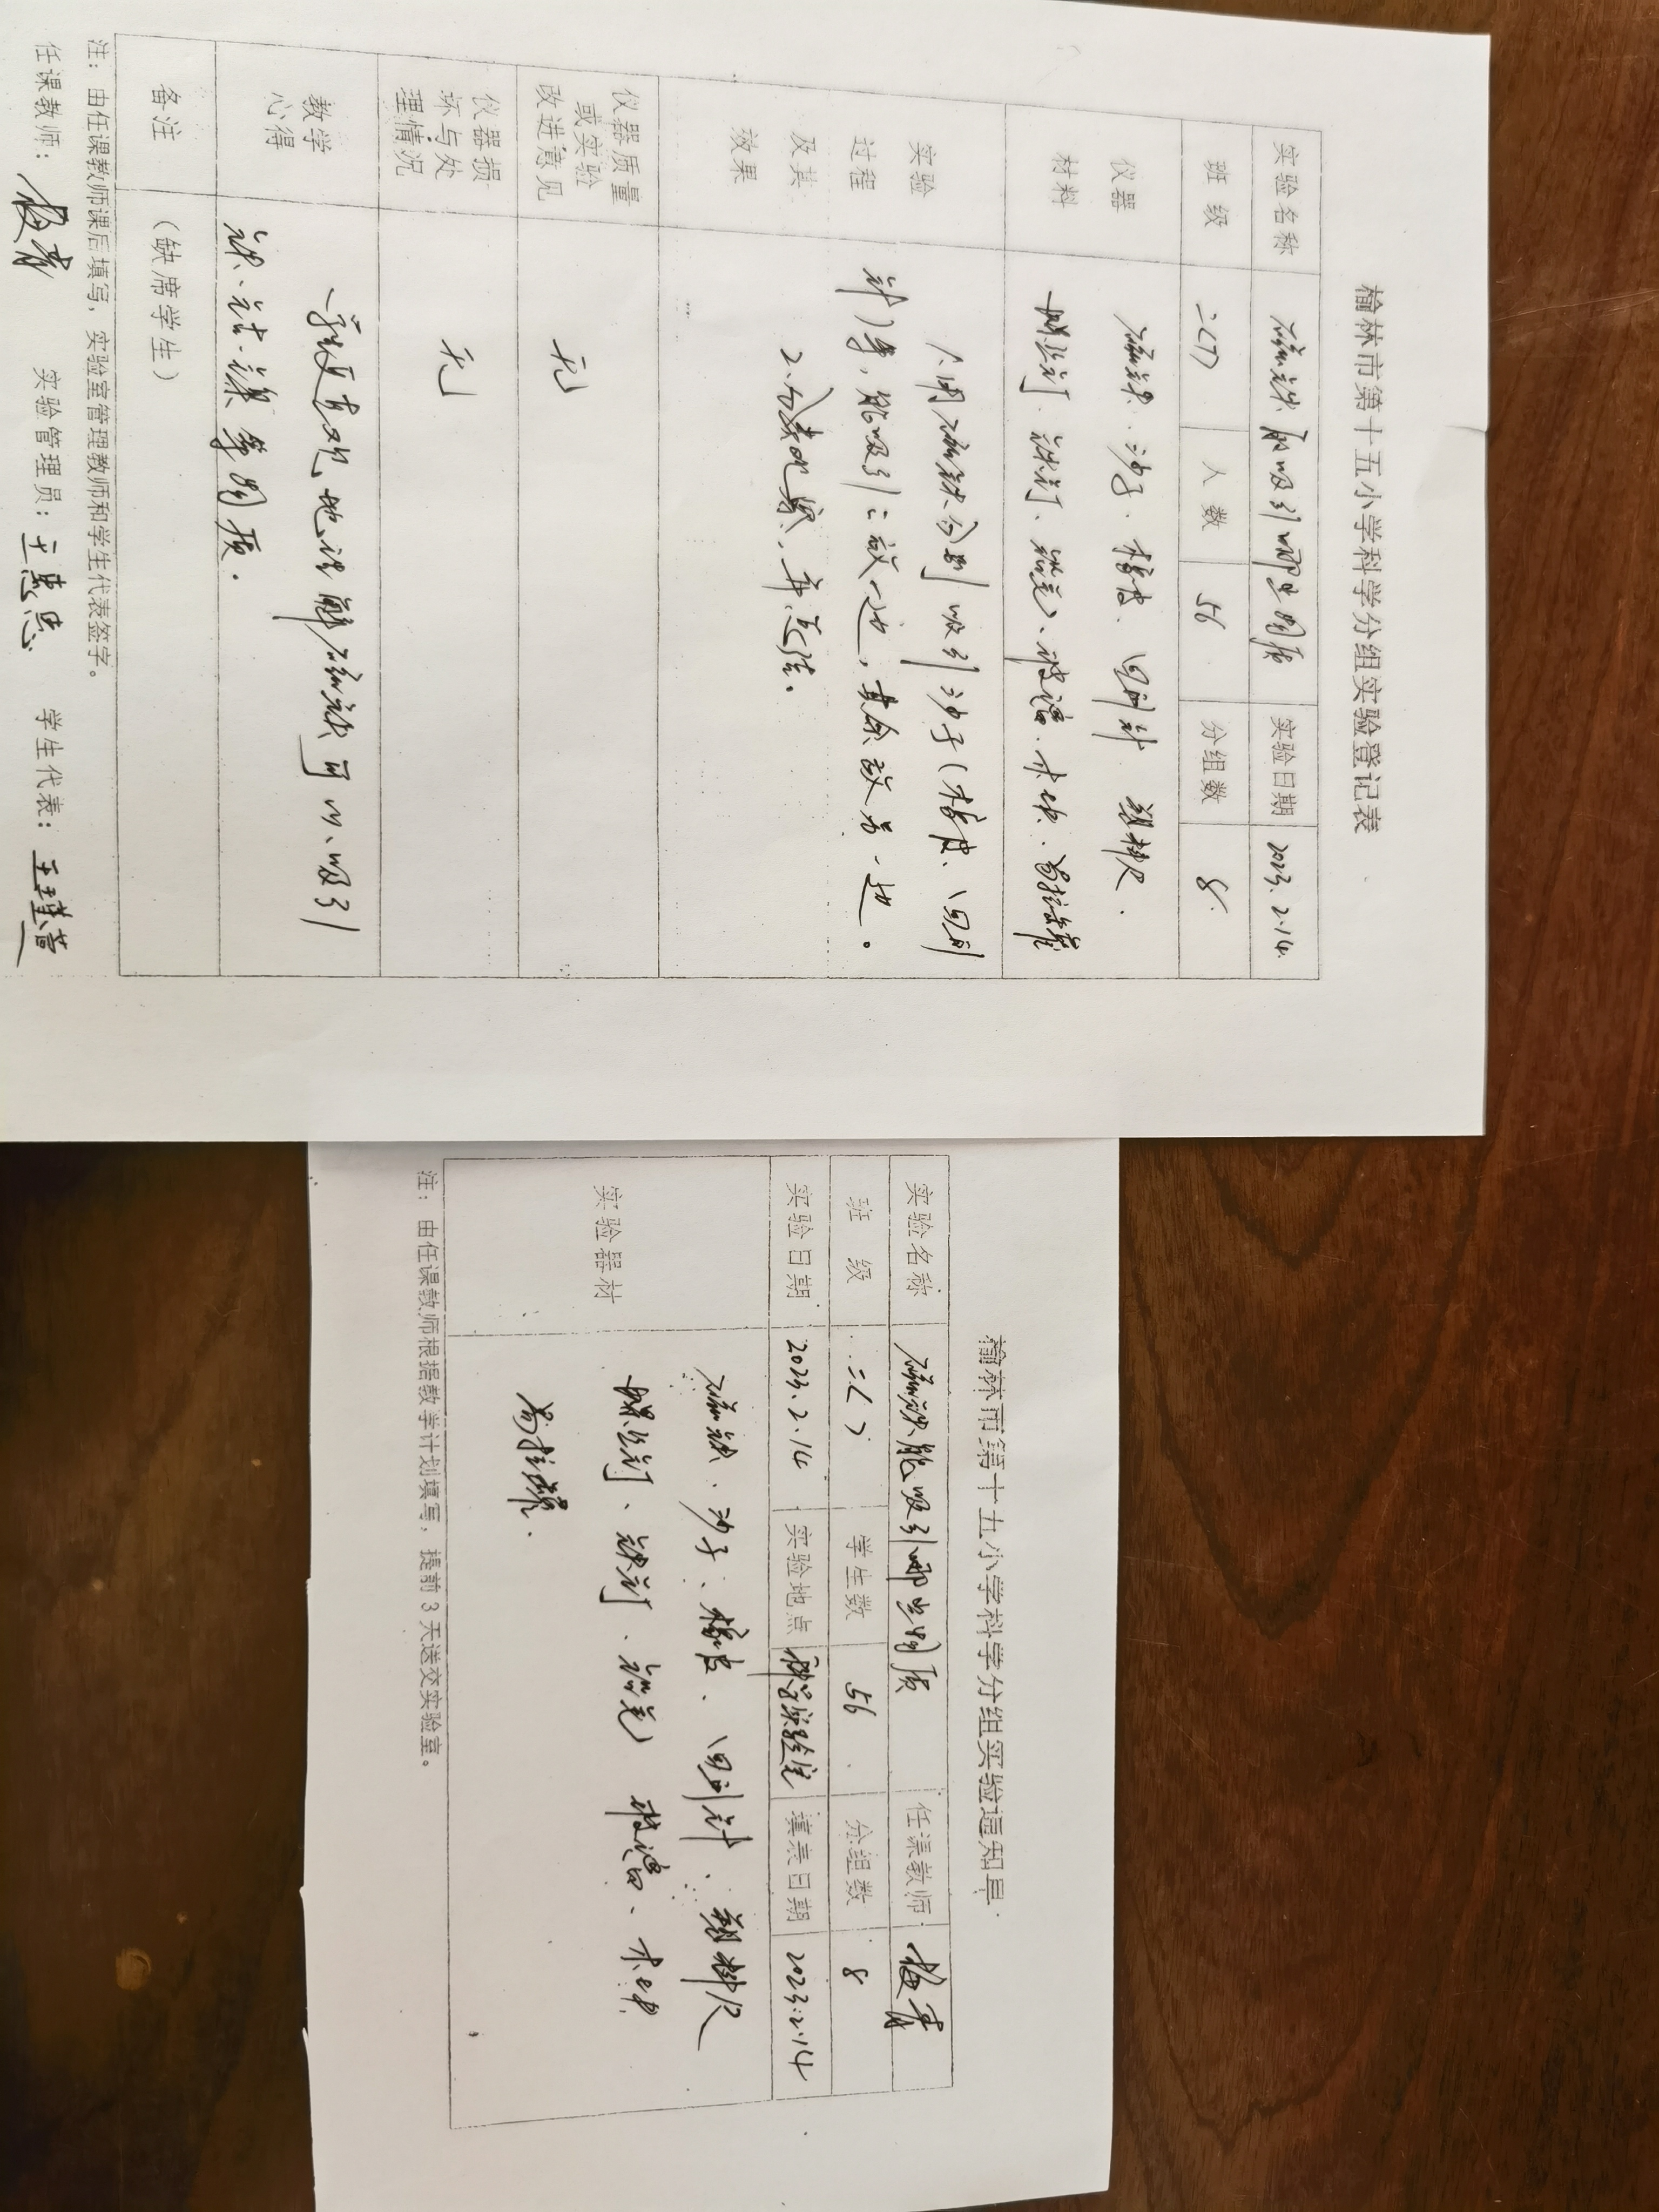 榆林市第十五小学科学分组实验登记表
实验名称 磁铁能吸引哪些物质 实验日期 2023.2.14
班级 二(7) 人数 56 分组数 8
仪器材料 磁铁、沙子、橡皮、回形针 塑料尺、
螺丝钉、铁钉、铅笔、玻璃、木块、易拉罐
实验过程及其效果 1.用磁铁分别吸引沙子(橡皮、回形
针)等,能吸引的放一边,其余放另一边。
2.分类记录,并总结。
仪器质量或实验改进意见 无
仪器损坏与处理情况 无
教学心得 学生更直观地理解磁铁可以吸引
铁、钴、镍等物质.
备注 (缺席学生)
注:由任课教师课后填写,实验室管理教师和学生代表签字。
任课教师: 实验管理员: 学生代表:
榆林市第十五小学科学分组实验通知单
实验名称 磁铁能吸引哪些物质 任课教师
班级 二( ) 学生数 56 分组数 8
实验日期 2023.2.14 实验地点 科学实验室 填表日期 2023.2.14
实验器材 磁铁、沙子、橡皮、回形针、塑料尺
螺丝钉、铁钉、铅笔 玻璃、木块
易拉罐.
注:由任课教师根据教学计划填写,提前3天送交实验室。